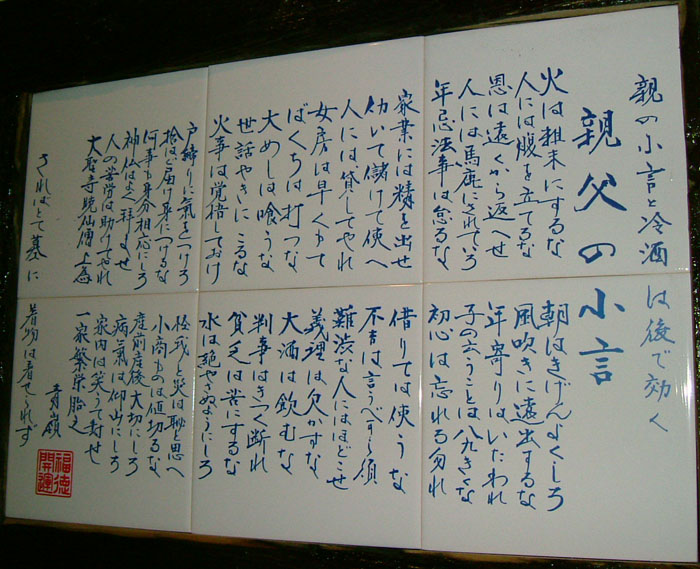 親の小言と冷酒は後で効く
親父の小言
火は粗末にするな
朝はきげんよくしろ
人には腹を立てるな
風吹きに遠出するな
恩は遠くから返へせ
年寄りはいたわれ
人には馬鹿にされてろ
子の云うことは八九きくな
年忌法事は怠るな
初心は忘れる勿れ
家業には精を出せ
借りては使うな
仂いて儲けて使へ
不吉は言うべから須
人には貸してやれ
難渋な人にはほどこせ
女房は早くもて
義理は欠かすな
ばくちは打つな
大酒は飲むな
大めしは喰うな
判事はきつく断れ
世話やきにこるな
貧乏は苦にするな
火事は覚悟しておけ
水は絶やさぬようにしろ
戸締りに氣をつけろ
怪我と災は恥と思へ
拾はば届け身につけるな
小商ものは値切るな
何事も身分相応にしろ
産前産後大切にしろ
神仏はよく拝ませ
病氣は仰山にしろ
人の苦労は助けてやれ
家内は笑うて暮せ
大聖寺暁仙僧上為
一家繁栄胎之
青嶺
さればとて墓に着物は着せられず
福徳開運